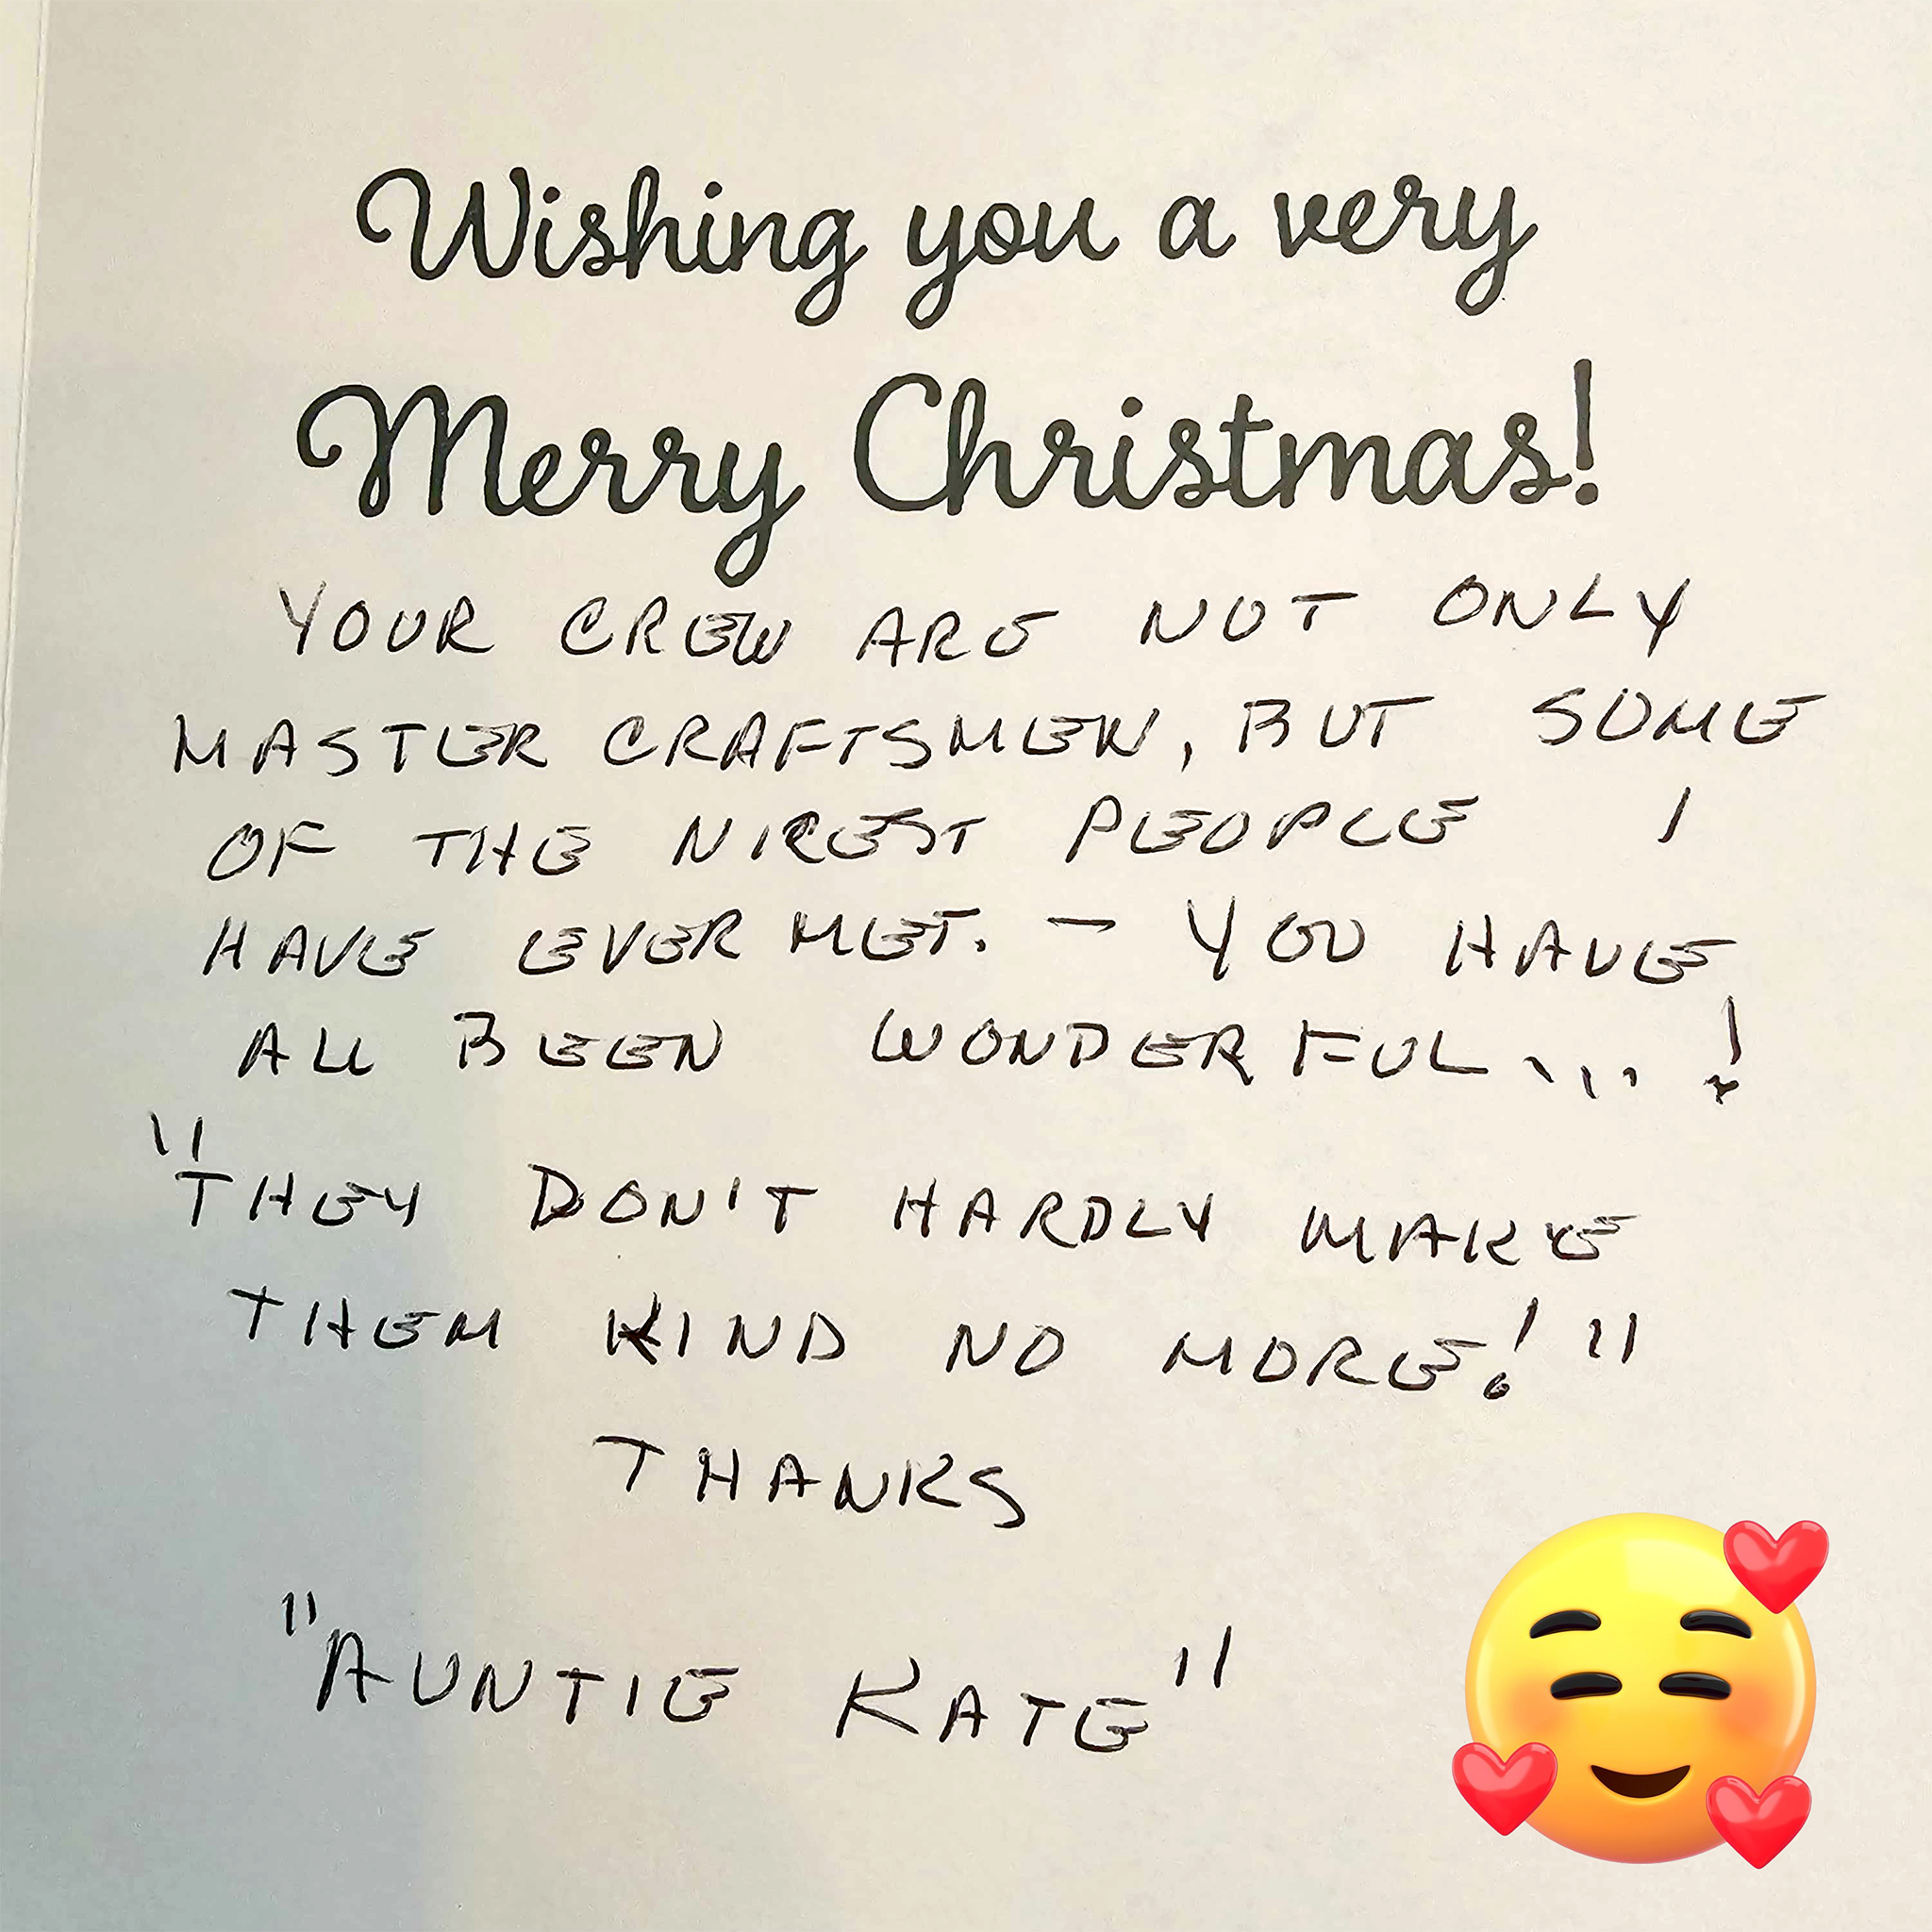 Wishing you a very
Merry Christmas!
YOUR CREW ARE NOT ONLY
MASTER CRAFTSMEN, BUT SOME
OF THE NICEST PEOPLE I
HAVE EVER MET. - YOU HAVE
ALL BEEN WONDERFUL...!
"THEY DON'T HARDLY MAKE
THEM KIND NO MORE!"
THANKS
"AUNTIE KATE"